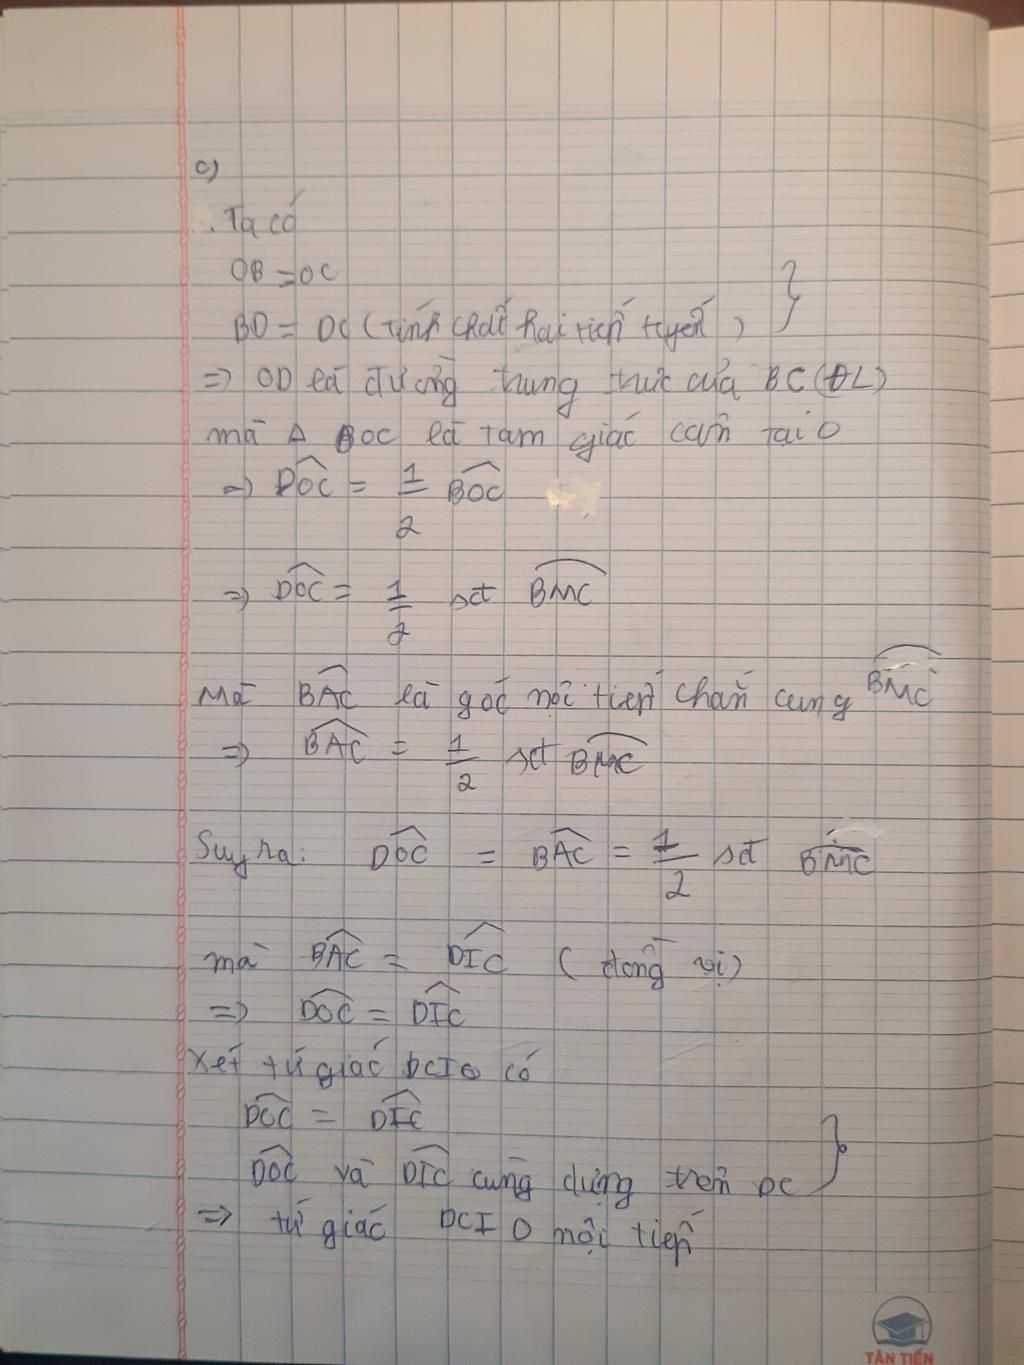 c)
Ta có
OB = OC
BD = DC (tính chất hai tiếp tuyến)
=> OD là đường trung trực của BC (ĐL)
mà Δ BOC là tam giác cân tại O
=> \widehat{DOC} = \frac{1}{2} \widehat{BOC}
=> \widehat{DOC} = \frac{1}{2} sđ \overset{\frown}{BMC}
Mà \widehat{BAC} là góc nội tiếp chắn cung \overset{\frown}{BMC}
=> \widehat{BAC} = \frac{1}{2} sđ \overset{\frown}{BMC}
Suy ra: \widehat{DOC} = \widehat{BAC} = \frac{1}{2} sđ \overset{\frown}{BMC}
mà \widehat{BAC} = \widehat{DIC} (đồng vị)
=> \widehat{DOC} = \widehat{DIC}
Xét tứ giác DCIO có
\widehat{DOC} = \widehat{DIC}
\widehat{DOC} và \widehat{DIC} cùng dựng trên DC
=> tứ giác DCIO nội tiếp
TÂN TIẾN